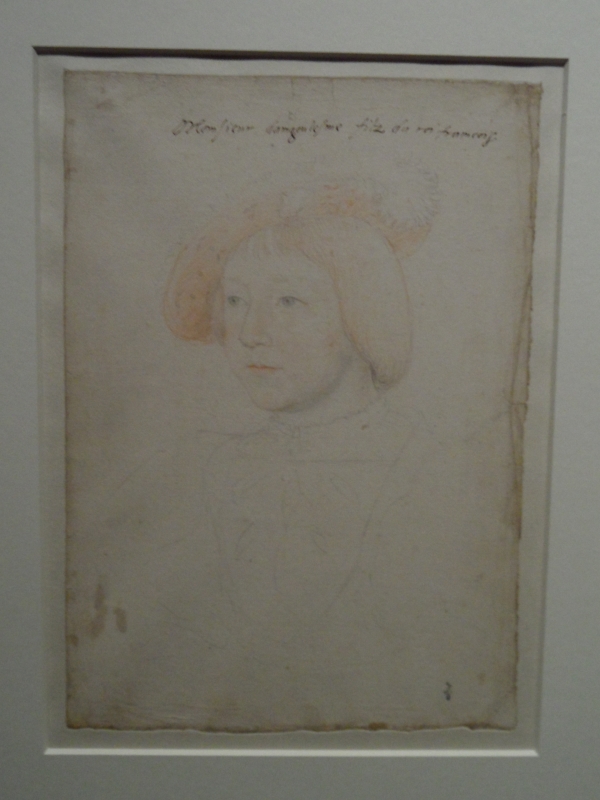 Monsieur dangoulesme filz du roi francois.